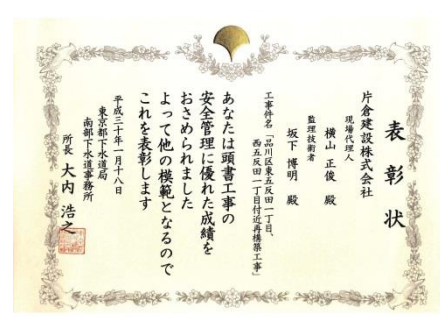 表彰状
片倉建設株式会社
現場代理人
横山 正俊 殿
監理技術者
坂下 博明 殿
工事件名「品川区東五反田一丁目、
西五反田一丁目付近再構築工事」
あなたは頭書工事の
安全管理に優れた成績を
おさめられました
よって他の模範となるので
これを表彰します
平成三十年一月十八日
東京都下水道局
南部下水道事務所
所長 大内 浩之